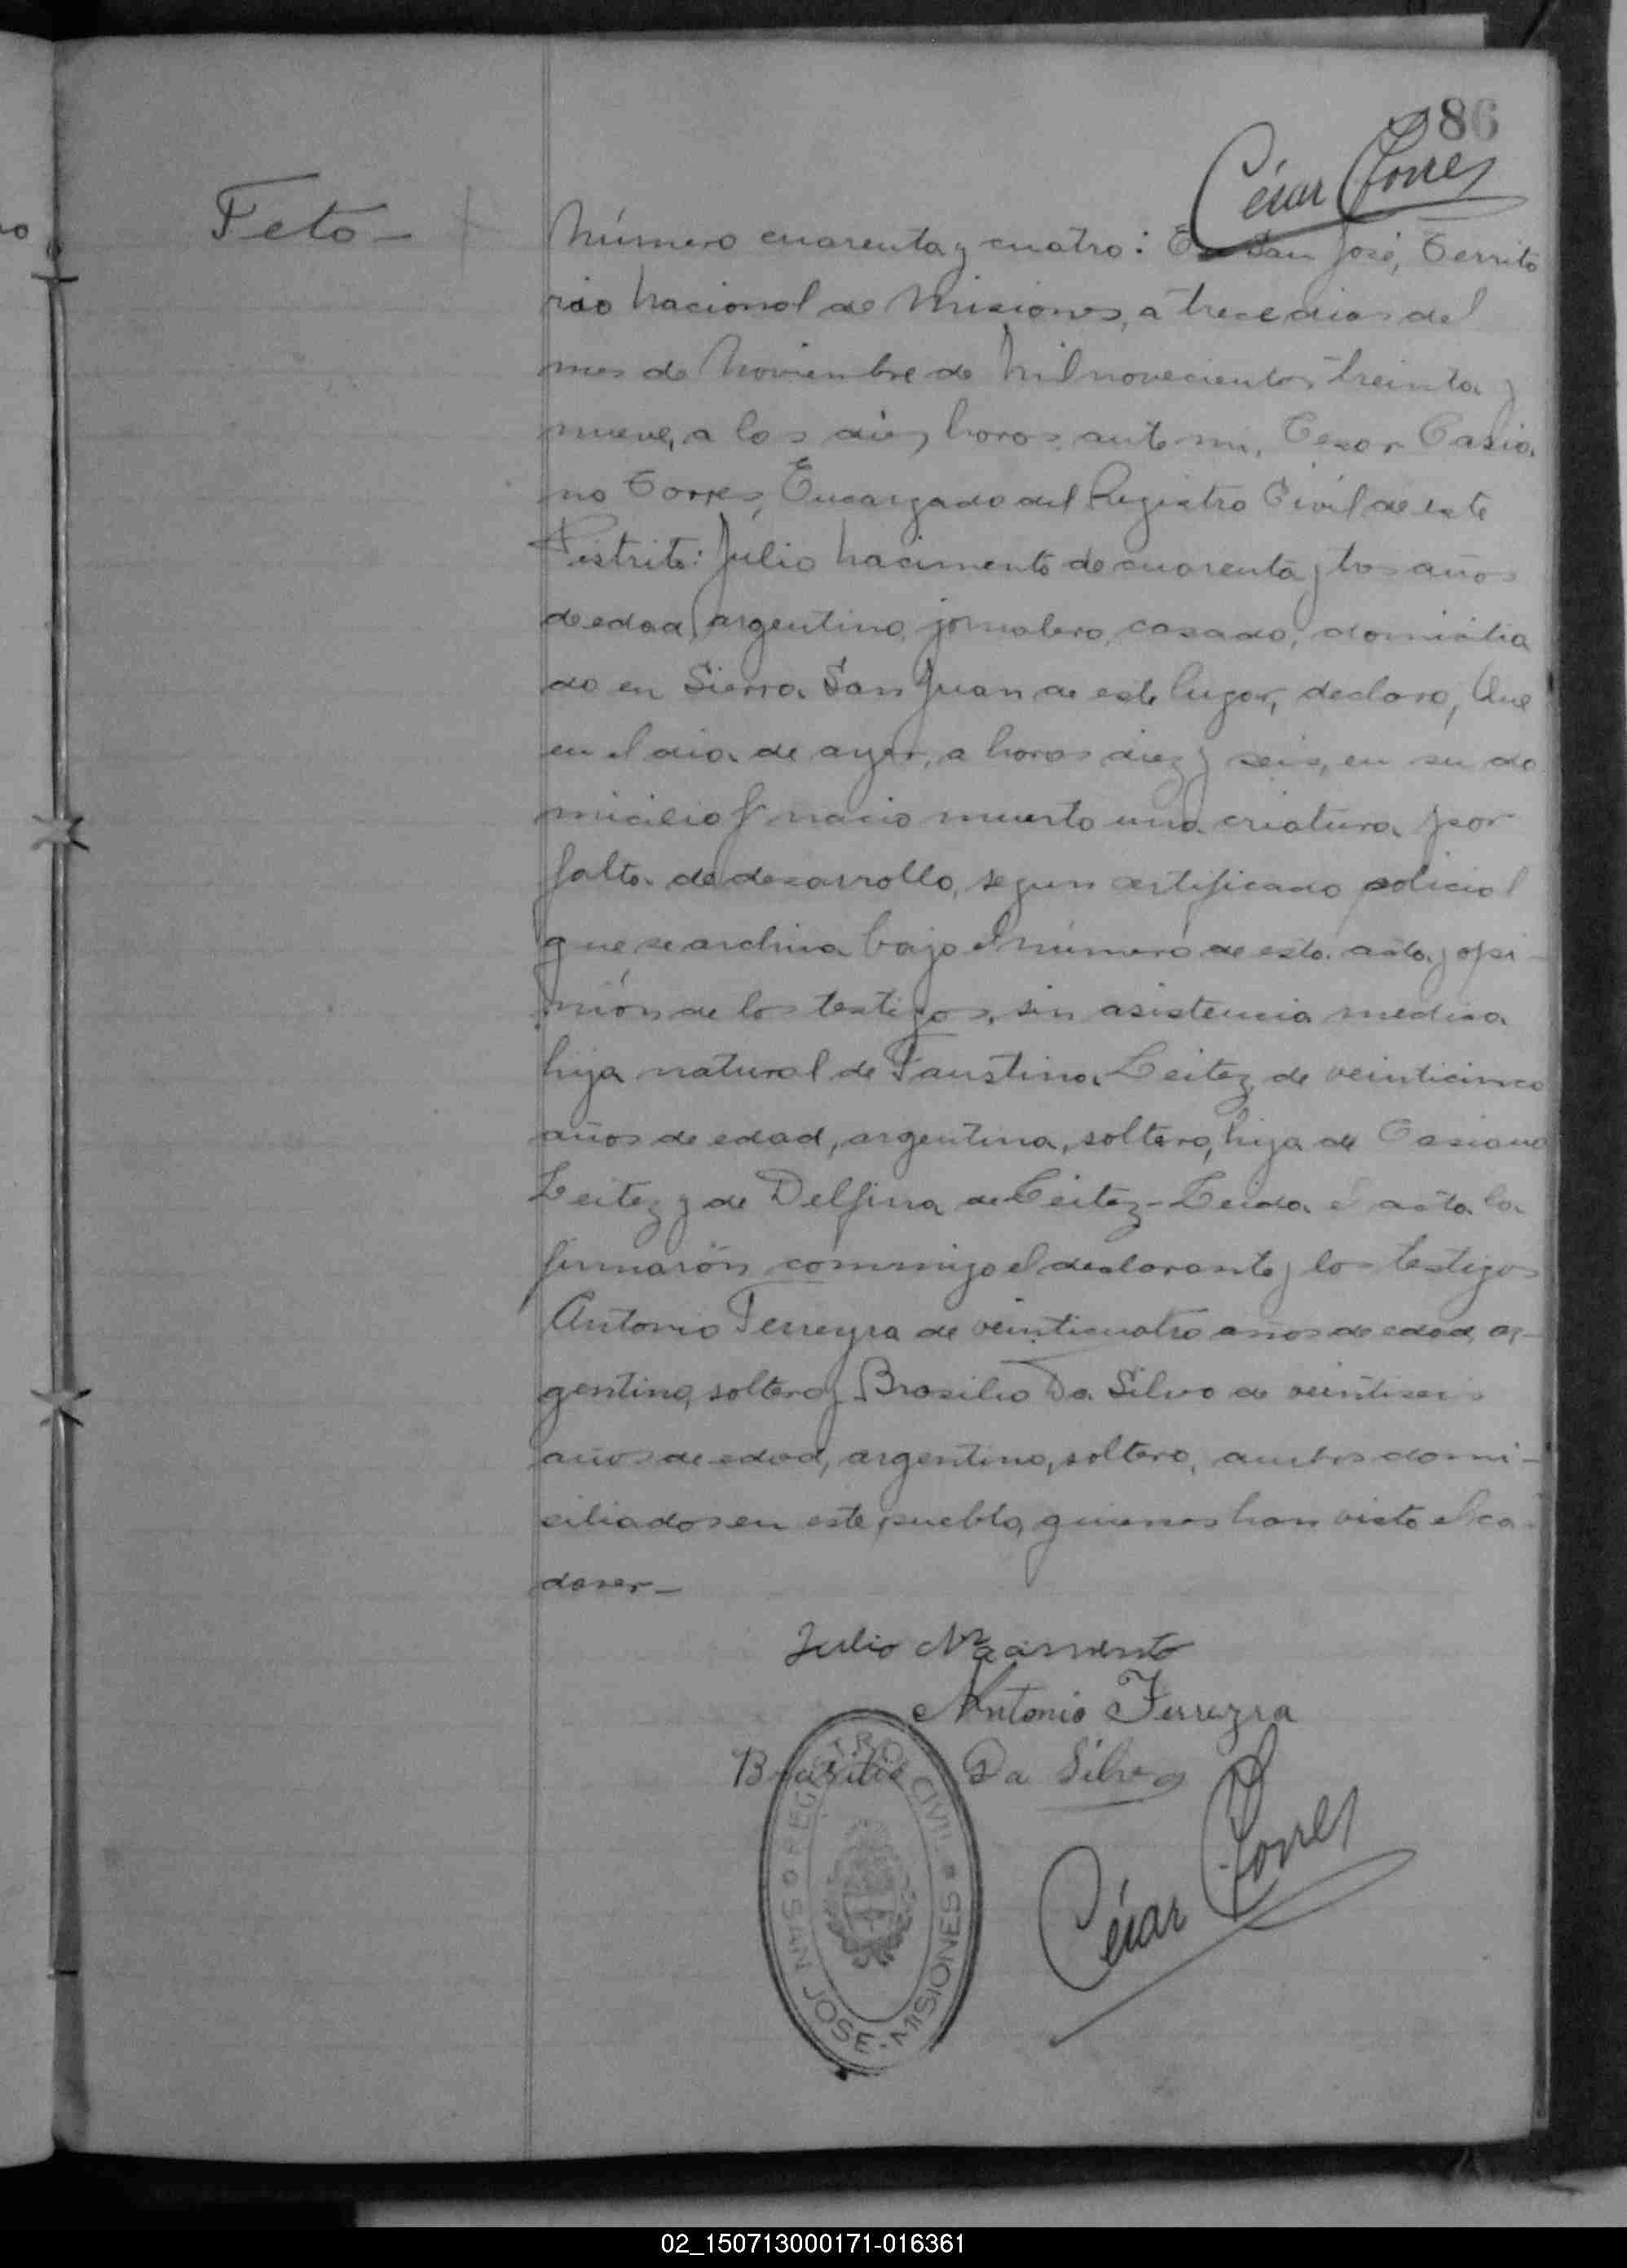 86
César Torres
Feto -
Número cuarenta y cuatro: En San José, Territo
rio Nacional de Misiones, a trece dias del
mes de Noviembre de Mil novecientos treinta y
nueve, a las diez horas, ante mi, Cesar Casia
no Torres, Encargado del Registro Civil de este
Distrito: Júlio Nacimento de cuarenta y tres años
de edad, argentino, jornalero, casado, domicilia
do en Sierra San Juan de este lugar, declaró, Que
en el dia de ayer, a horas diez y seis, en su do
micilio nació muerto una criatura por
falta de desarrollo, segun certificado policial
que se archiva bajo el número de esta acta y opi-
nión de los testigos, sin asistencia medica
hija natural de Faustina Leitez de veinticinco
años de edad, argentina, soltera, hija de Casiano
Leitez y de Delfina de Leitez - Leida el acta la
firmarón commigo el declarante y los testigos
Antonio Ferreyra de veinticuatro años de edad, ar-
gentino, soltero y Brasilio Da Silva de veintiseis
años de edad, argentino, soltero, ambos domi-
ciliados en este pueblo, quienes han visto el ca-
daver -
Julio Nacimento
Antonio Ferreyra
Brasilio Da Silva
César Torres
REGISTRO CIVIL
SAN JOSE - MISIONES
02_150713000171-016361